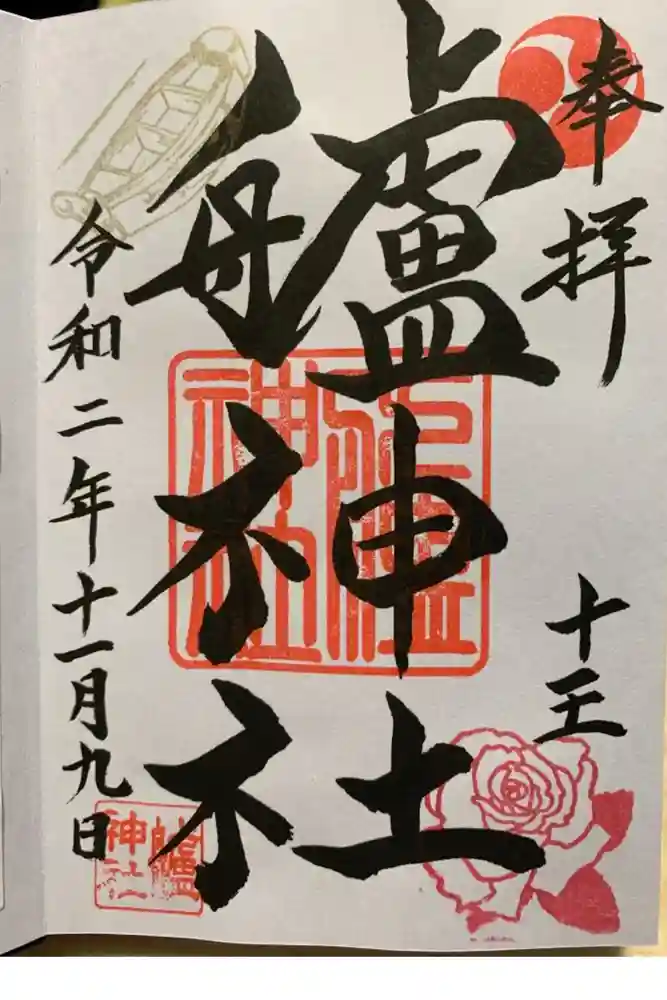 奉拝
十王
艫神社
令和二年十一月九日
艫神社
艫神社